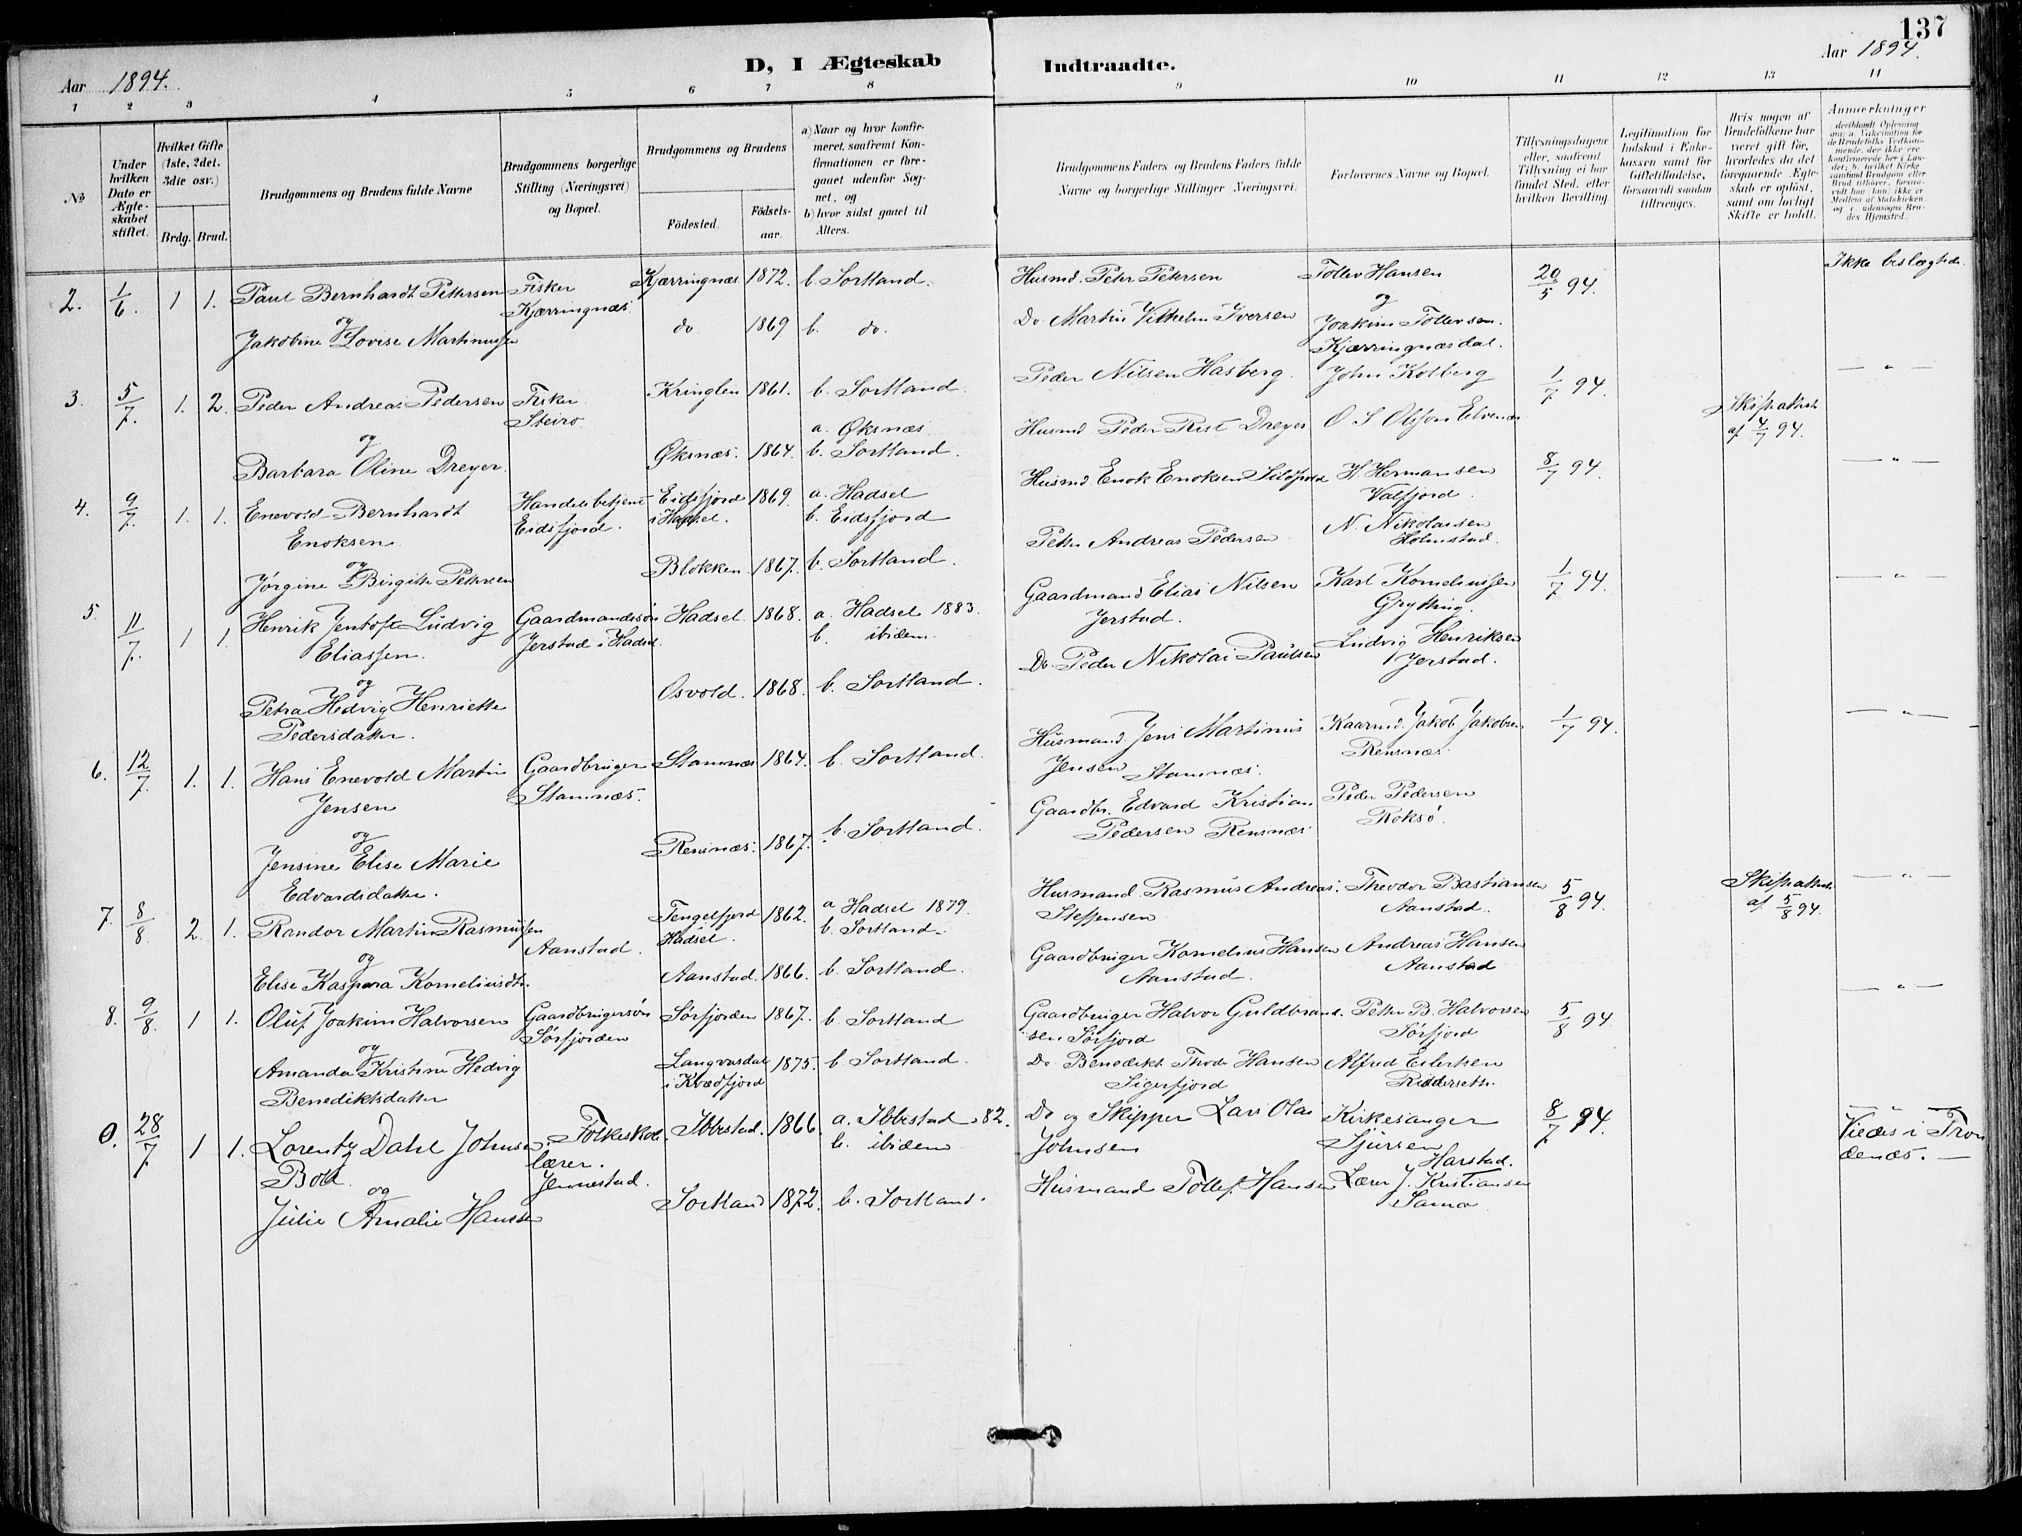 137
Aar 1894.
D, I Ægteskab Indtraadte.
Aar 1894.
1 2 3 4 5 6 7 8 9 10 11 12 13 14
No
Under hvilken Dato er Ægteskabet stiftet.
Hvilket Gifte (1ste, 2det, 3die osv.)
Brdg. Brud.
Brudgommens og Brudens fulde Navne
Brudgommens borgerlige Stilling (Næringsvei) og Bopæl.
Brudgommens og Brudens
Födested. Födsels-aar.
a) Naar og hvor konfirmeret, saafremt Konfirmationen er foregaaet udenfor Sognet, og
b) hvor sidst gaaet til Alters.
Brudgommens Faders og Brudens Faders fulde Navne og borgerlige Stillinger Næringsvei.
Forlovernes Navne og Bopæl.
Tillysningsdagene eller, saafremt Tillysning ei har fundet Sted, efter hvilken Bevilling
Legitimation for Indskud i Enkekassen samt for Giftetilladelse, forsaavidt saadan tiltrænges.
Hvis nogen af Brudefolkene har været gift før, hvorledes da det foregaaende Ægteskab er oplöst, samt om lovligt Skifte er holdt.
Anmerkninger
2. 1/6. 1 1. Paul Bernhardt Pettersen Fisker Kjærringnæs. Kjærringnæs 1872. b. Sortland. Husmd. Peter Petersen Tollev Hansen 20/5 94. Ikke beslægtede.
og
Jakobine Lovise Martinussen do. 1869 b. do. Do Martin Vilhelm Iversen og Joakim Tollevsen. Kjærringnæsdal.
3. 5/7. 1. 2. Peder Andreas Pedersen Fisker Steiro Kringlen 1861. b. Sortland. Peder Nilsen Hasberg. John Kolberg 1/7 94. Skifteattest af 4/7 94. — " —
og
Barbara Oline Dreyer. Øksnæs. 1864. a. Øksnæs b. Sortland. Husmd Peder Rist Dreyer O S Olsson Elvenæs
4. 9/7. 1. 1. Enevold Bernhardt Enoksen Handelsbetjent Eidsfjord. Eidsfjord i Hadsel. 1869. a. Hadsel b. Eidsfjord Husmd. Enok Enoksen Sildpold H. Hermansen Valfjord. 8/7 94. — " —
og
Jørgine Birgitte Pettersen Blokken. 1867. b. Sortland. Petter Andreas Pedersen N. Nikolaisen Holmstad.
5 11/7. 1 1. Henrik Jentoft Ludvig Eliassen. Gaardmandssøn Jerstad i Hadsel. Hadsel. 1868. a. Hadsel 1883. b. ibidem. Gaardmand Elias Nilsen Jerstad. Karl Korneliussen Grytting. 1/7 94. — " —
og
Petra Hedvig Henriette Pedersdatter. Osvold. 1868. b. Sortland. Do. Peder Nikolai Paulsen Ludvig Henriksen Jerstad.
6. 12/7. 1. 1. Hans Enevold Martin Jensen Gaardbruger Stamnæs. Stamnæs 1864. b. Sortland. Husmand Jens Martinus Jensen Stamnæs. Kaarmd. Jakob Jakobsen Rensnæs. 1/7 94. — " —
og
Jensine Elise Marie Edvardsdatter. Rensnæs. 1867. b. Sortland. Gaardbr. Edvard Kristian Pedersen Rensnæs Peder Pedersen Roksö.
7. 8/8 2. 1. Randor Martin Rasmussen Aanstad. Tengelfjord Hadsel. 1862. a Hadsel 1879. b. Sortland. Husmand Rasmus Andreas Steffensen Theodor Bastiansen Aanstad. 5/8 94. Skifteattest af 5/8 94. — " —
og
Elise Kaspara Korneliusdtr. Aanstad. 1866. b. Sortland. Gaardbruger Kornelius Hansen Aanstad. Andreas Hansen Aanstad
8. 9/8. 1 1. Oluf Joakim Halvorsen Gaardbrugersøn Sørfjorden Sørfjorden 1867. b Sortland Gaardbruger Halvor Guldbrandsen Sørfjord Petter B. Halvorsen Sørfjord 5/8 94. — " —
og
Amanda Kristine Hedvig Benediktsdatter Langvasdal i Kvædfjord 1875. b Sortland. Do. Benedikt Thode Hansen Sigerfjord Alfred Eilertsen Ridderseth.
0. 28/7 1 1. Lorentz Dahl Johnsen Boll. Folkeskolelærer. Jennestad. Ibbestad. 1866. a. Ibbestad 82. b. ibidem Do og Skipper Lars Olai Johnsen Kirkesanger Sjursen Harstad. 8/7 94. Viedes i Trondenæs. —
og
Julie Amalie Hansen Sortland 1872. b. Sortland. Husmand Tollef Hansen Lærer J. Kristiansen Sama